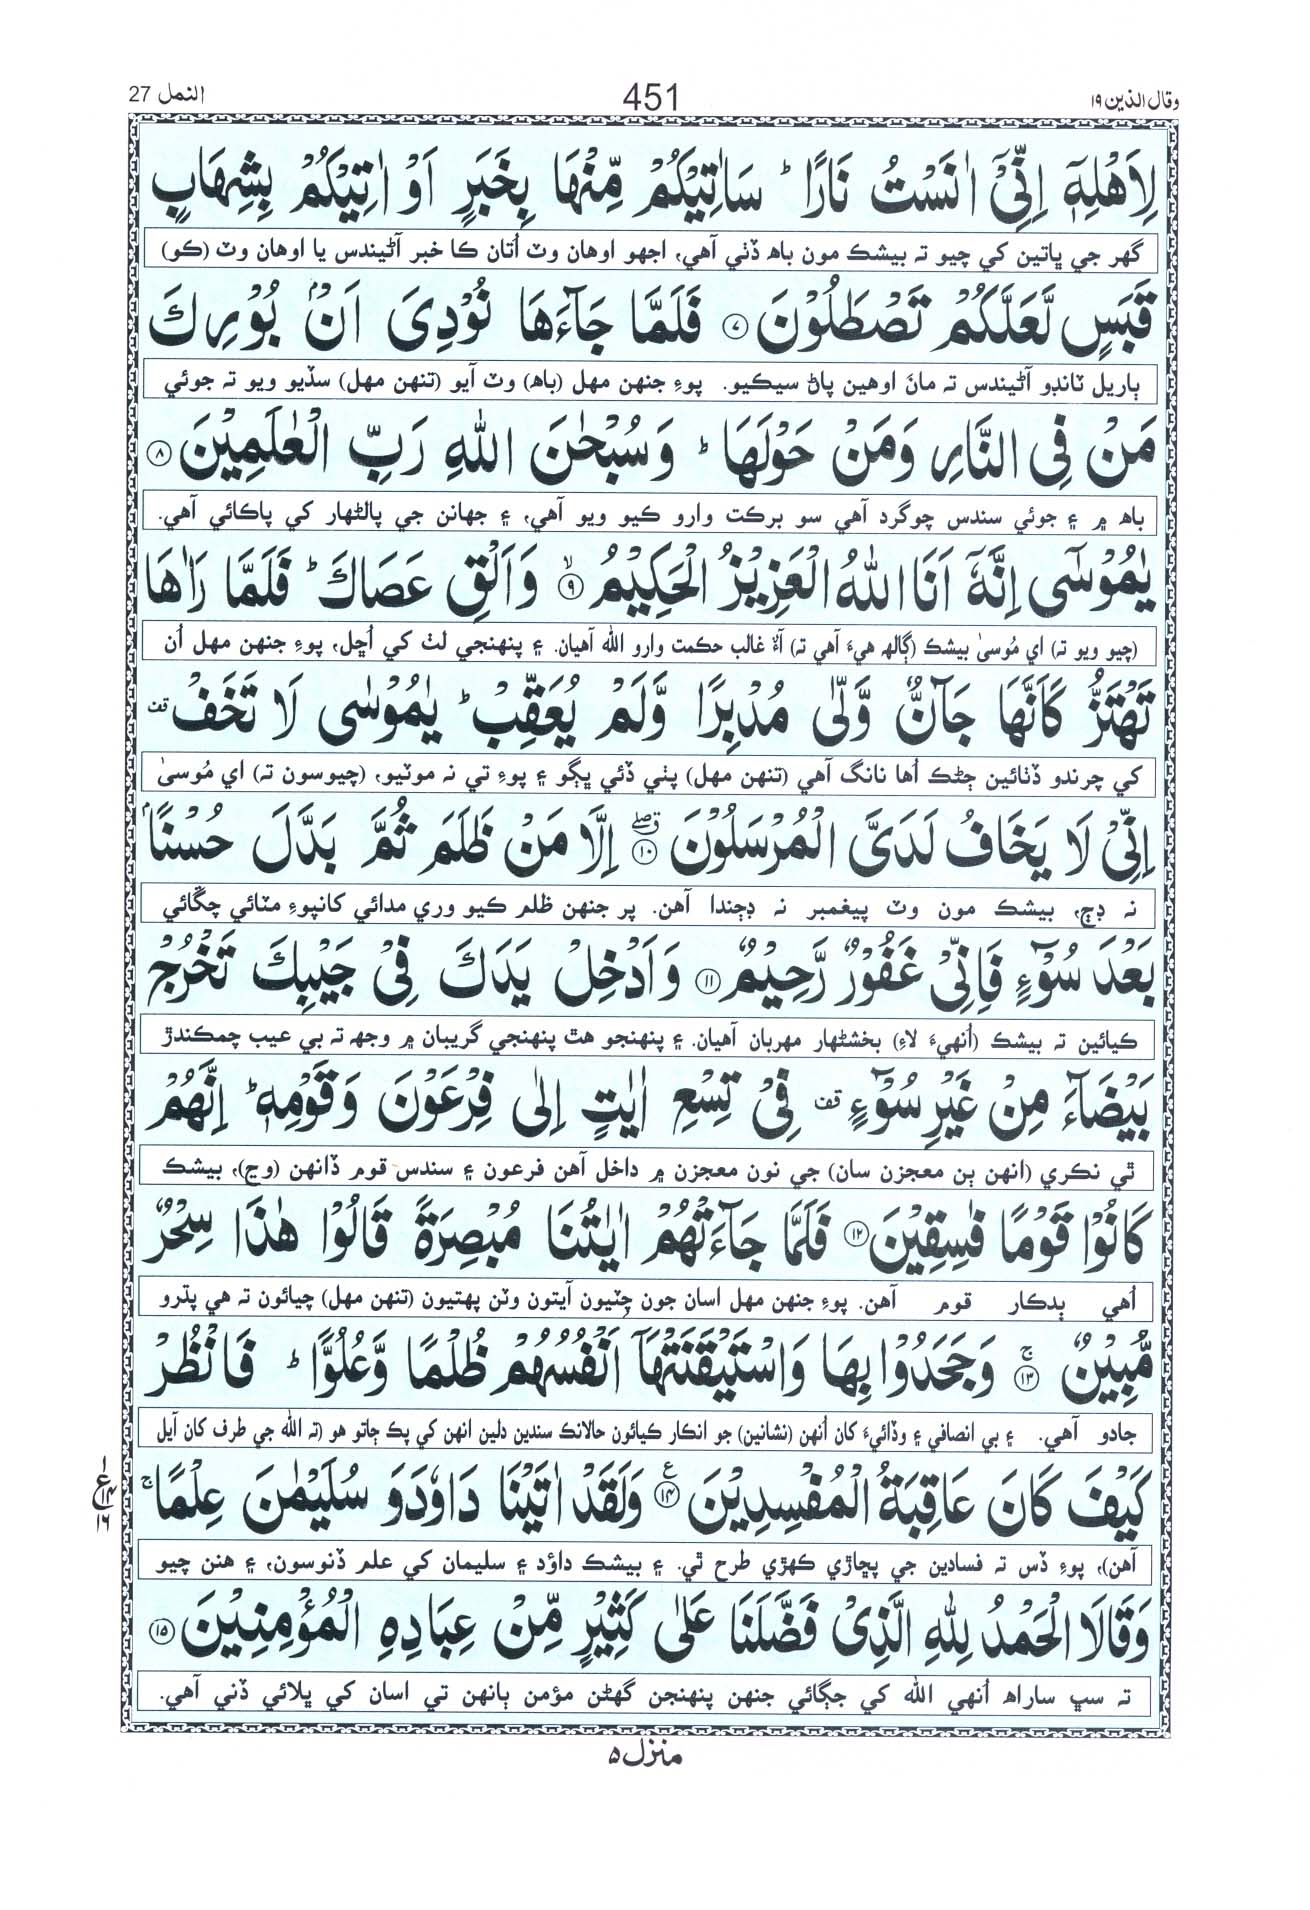 وقال الذين ١٩ 451 النمل 27
لِاَهْلِهٖۤ اِنِّیْۤ اٰنَسْتُ نَارًا ؕ سَاٰتِیْكُمْ مِّنْهَا بِخَبَرٍ اَوْ اٰتِیْكُمْ بِشِهَابٍ
گهر جي ڀاتين کي چيو ته بيشڪ مون باهه ڏٺي آهي، اجهو اوهان وٽ اُتان ڪا خبر آڻيندس يا اوهان وٽ (ڪو)
قَبَسٍ لَّعَلَّكُمْ تَصْطَلُوْنَ ﴿۷﴾ فَلَمَّا جَآءَهَا نُوْدِیَ اَنْۢ بُوْرِكَ
ٻاريل ٽانڊو آڻيندس ته مانَ اوهين پاڻ سيڪيو. پوءِ جنهن مهل (باهه) وٽ آيو (تنهن مهل) سڏيو ويو ته جوئي
مَنْ فِی النَّارِ وَمَنْ حَوْلَهَا ؕ وَسُبْحٰنَ اللّٰهِ رَبِّ الْعٰلَمِیْنَ ﴿۸﴾
باهه ۾ ۽ جوئي سندس چوگرد آهي سو برڪت وارو ڪيو ويو آهي، ۽ جهانن جي پالڻهار کي پاڪائي آهي.
یٰمُوْسٰۤی اِنَّهٗۤ اَنَا اللّٰهُ الْعَزِیْزُ الْحَكِیْمُ ﴿۹﴾ۙ وَاَلْقِ عَصَاكَ ؕ فَلَمَّا رَاٰهَا
(چيو ويو ته) اي مُوسىٰ بيشڪ (ڳالهه هيءَ آهي ته) آءٌ غالب حڪمت وارو الله آهيان. ۽ پنهنجي لٺ کي اُڇل، پوءِ جنهن مهل اُن
تَهْتَزُّ كَاَنَّهَا جَآنٌّ وَّلّٰی مُدْبِرًا وَّلَمْ یُعَقِّبْ ؕ یٰمُوْسٰی لَا تَخَفْ قف
کي چرندو ڏٺائين ڄڻڪ اُها نانگ آهي (تنهن مهل) پٺي ڏئي ڀڳو ۽ پوءِ تي نه موٽيو، (چيوسون ته) اي مُوسىٰ
اِنِّیْ لَا یَخَافُ لَدَیَّ الْمُرْسَلُوْنَ ﴿۱۰﴾ اِلَّا مَنْ ظَلَمَ ثُمَّ بَدَّلَ حُسْنًۢا
نہ ڊڄ، بيشڪ مون وٽ پيغمبر نہ ڊڄندا آهن. پر جنهن ظلم ڪيو وري مدائي کانپوءِ مٽائي چڱائي
بَعْدَ سُوْٓءٍ فَاِنِّیْ غَفُوْرٌ رَّحِیْمٌ ﴿۱۱﴾ وَاَدْخِلْ یَدَكَ فِیْ جَیْبِكَ تَخْرُجْ
ڪيائين ته بيشڪ (اُنهيءَ لاءِ) بخشڻهار مهربان آهيان. ۽ پنهنجو هٿ پنهنجي گريبان ۾ وجهه ته بي عيب چمڪندڙ
بَیْضَآءَ مِنْ غَیْرِ سُوْٓءٍ قف فِیْ تِسْعِ اٰیٰتٍ اِلٰی فِرْعَوْنَ وَقَوْمِهٖ ؕ اِنَّهُمْ
ٿي نڪري (انهن ٻن معجزن سان) جي نون معجزن ۾ داخل آهن فرعون ۽ سندس قوم ڏانهن (وڃ)، بيشڪ
كَانُوْا قَوْمًا فٰسِقِیْنَ ﴿۱۲﴾ فَلَمَّا جَآءَتْهُمْ اٰیٰتُنَا مُبْصِرَةً قَالُوْا هٰذَا سِحْرٌ
اُهي بدڪار قوم آهن. پوءِ جنهن مهل اسان جون چٽيون آيتون وٽن پهتيون (تنهن مهل) چيائون ته هي پڌرو
مُّبِیْنٌ ﴿۱۳﴾ۚ وَجَحَدُوْا بِهَا وَاسْتَیْقَنَتْهَاۤ اَنْفُسُهُمْ ظُلْمًا وَّعُلُوًّا ؕ فَانْظُرْ
جادو آهي. ۽ بي انصافي ۽ وڏائيءَ کان اُنهن (نشانين) جو انڪار ڪيائون حالانڪ سندين دلين انهن کي پڪ ڄاتو هو (ته الله جي طرف کان آيل
كَیْفَ كَانَ عَاقِبَةُ الْمُفْسِدِیْنَ ﴿۱۴﴾ع وَلَقَدْ اٰتَیْنَا دَاوٗدَ وَ سُلَیْمٰنَ عِلْمًا ۚ
١ ع ١٤ ١٦
آهن)، پوءِ ڏس ته فسادين جي پڇاڙي ڪهڙي طرح ٿي. ۽ بيشڪ داؤد ۽ سليمان کي علم ڏنوسون، ۽ هنن چيو
وَقَالَا الْحَمْدُ لِلّٰهِ الَّذِیْ فَضَّلَنَا عَلٰی كَثِیْرٍ مِّنْ عِبَادِهِ الْمُؤْمِنِیْنَ ﴿۱۵﴾
ته سڀ ساراهه اُنهي الله کي جڳائي جنهن پنهنجن گهڻن مؤمن ٻانهن تي اسان کي ڀلائي ڏني آهي.
منزل ٥